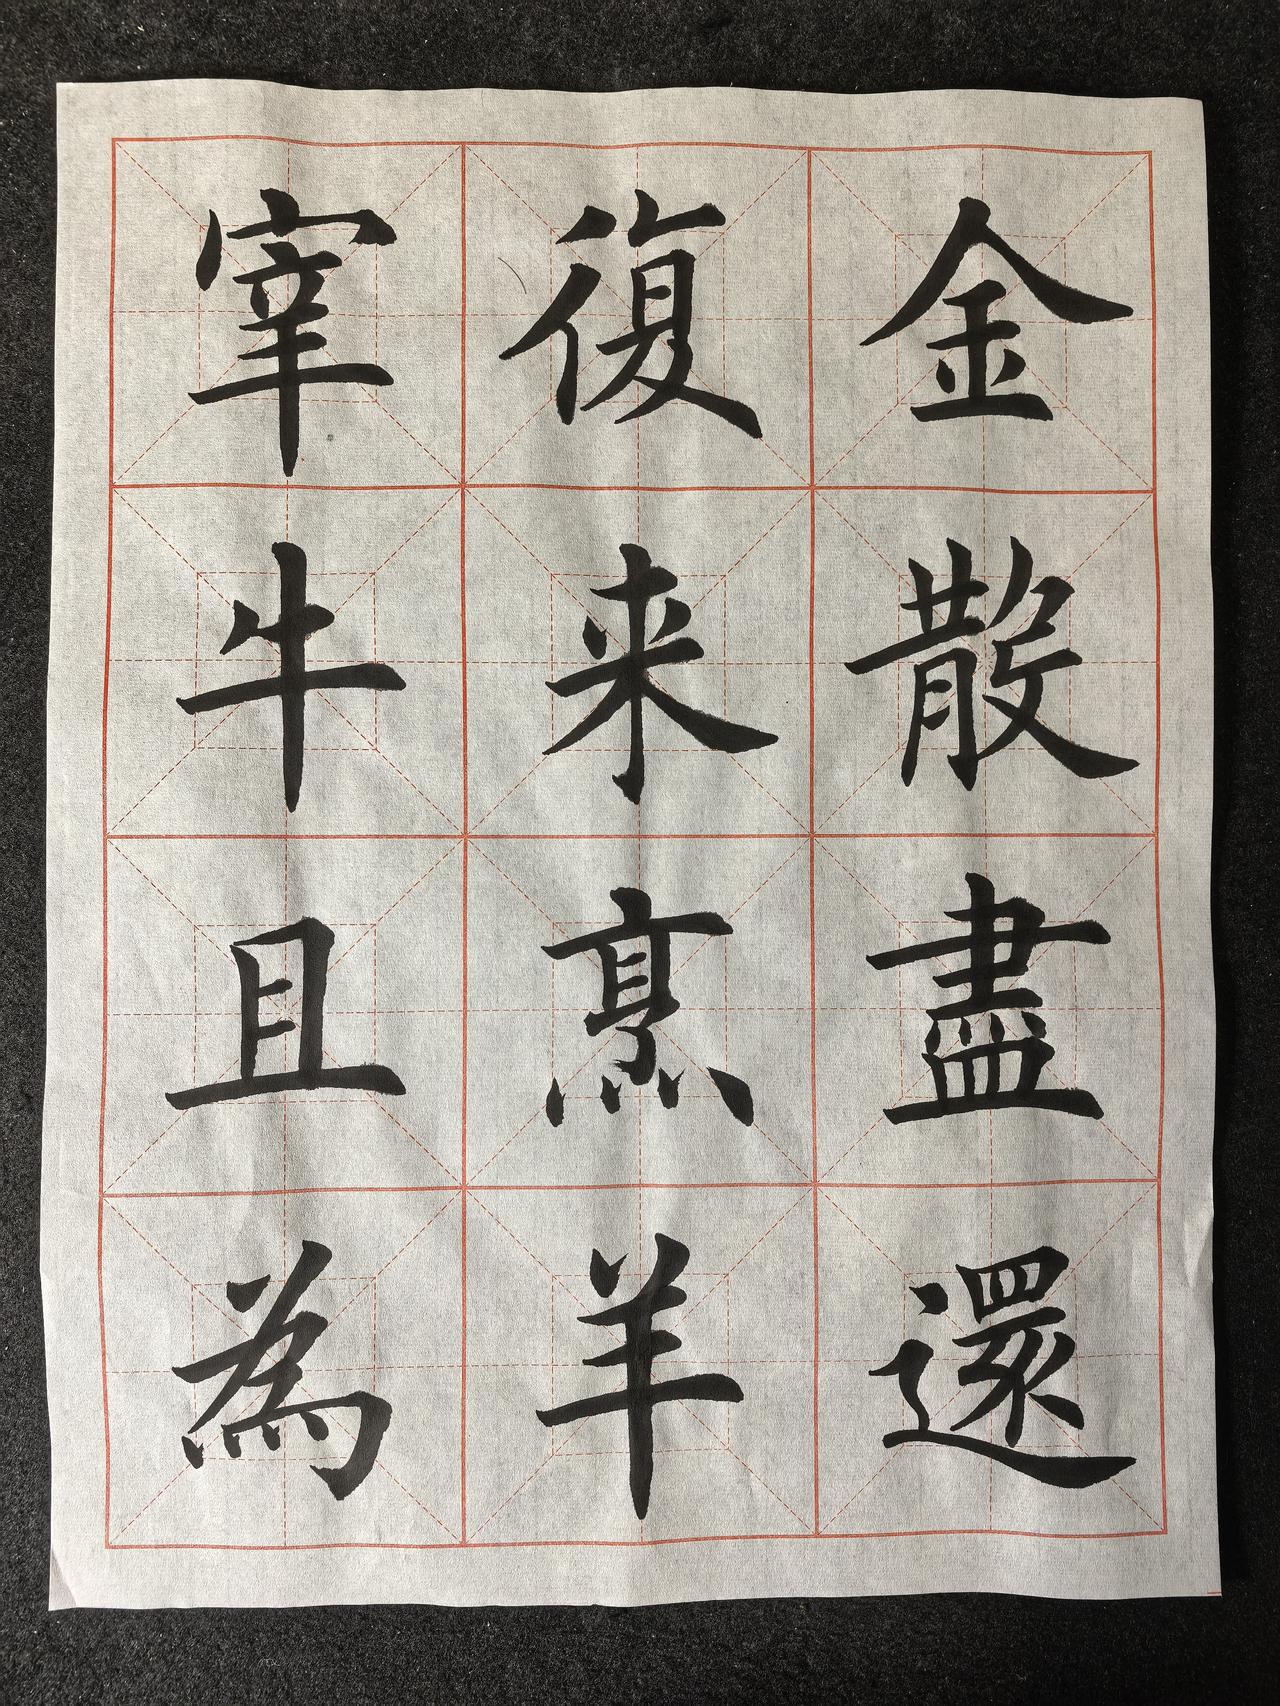 金散盡還
復来烹羊
宰牛且為